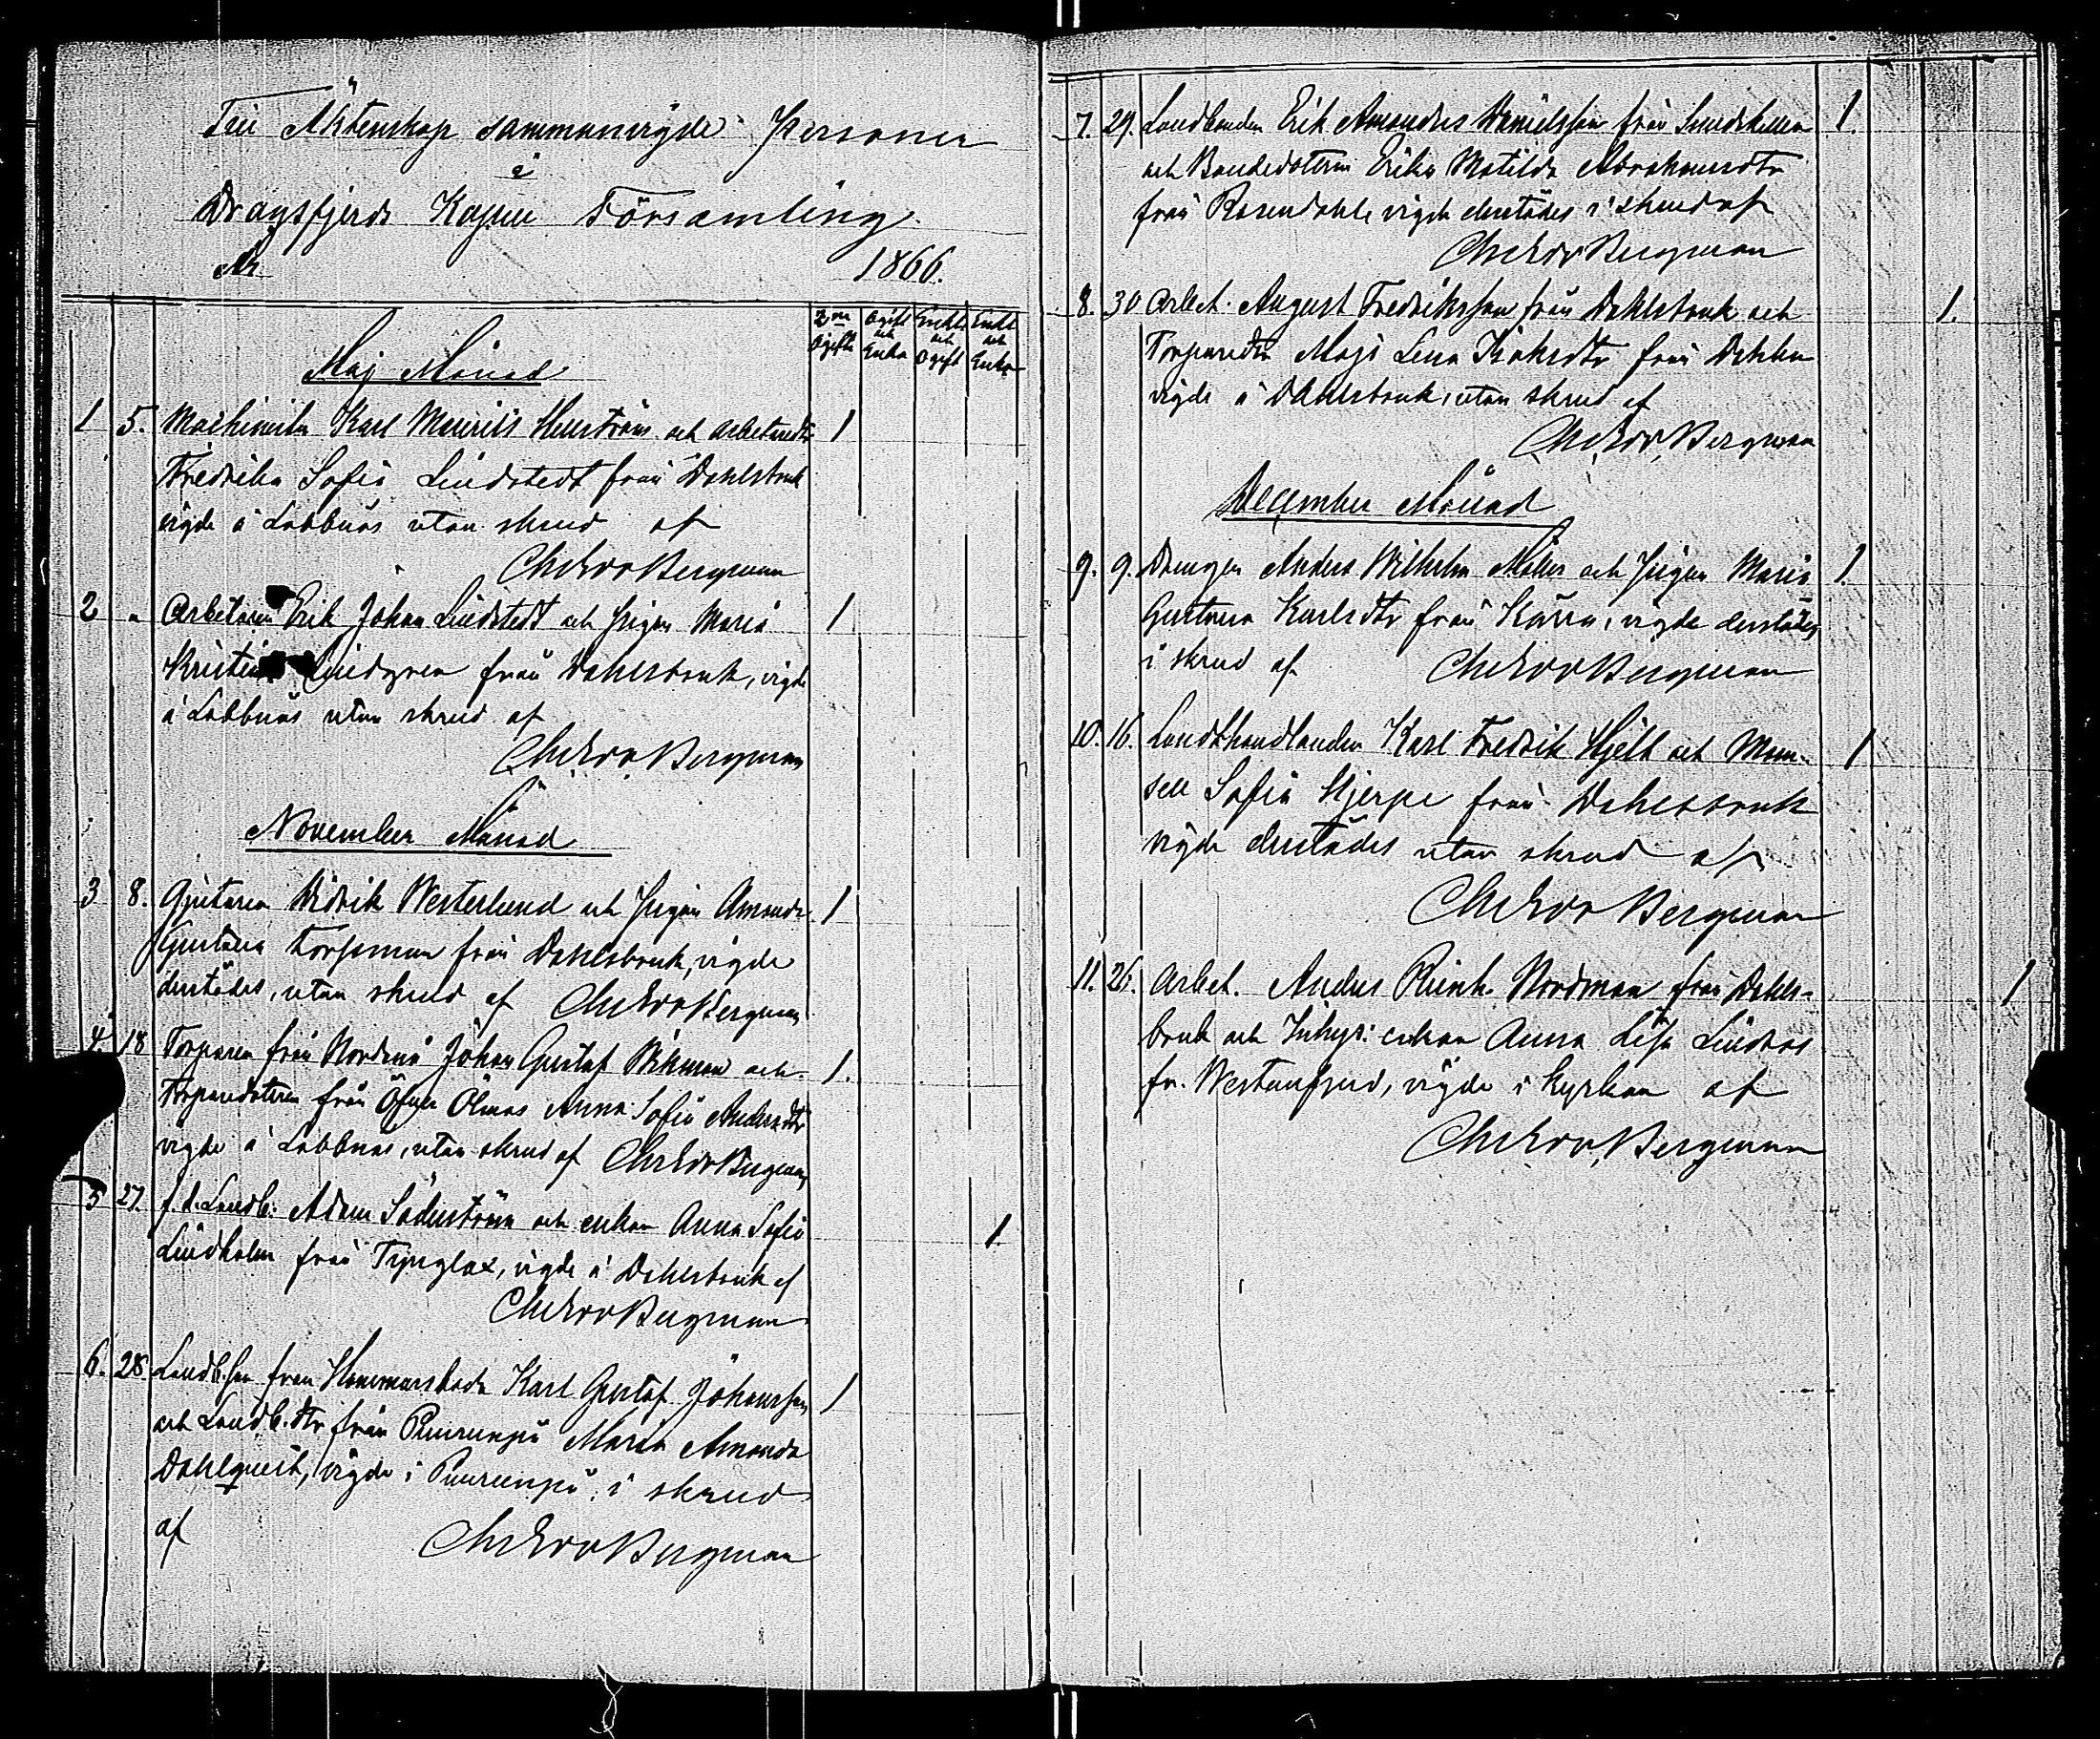 Till Äktenskap sammanvigde Personer
i
Dragsfjerds Kapell Församling
År 1866.
2ne Ogifte
Ogift och Enka
Enkl. och Ogift
Enkl. och Enka
Maj Månad
1 5. Machinisten Karl Mauritz Hellström och arbetaredtr 1
Fredrika Sofia Lindstedt från Dahlsbruk
vigde å Labbnäs utan skrud af
Chr Edv Bergman
2 " Arbetaren Erik Johan Lindstedt och Pigan Maria 1
Kristina Lindgren från Dahlsbruk, vigde
å Labbnäs utan skrud af
Chr Edv. Bergman
November Månad
3 8. Gjutaren Didrik Westerlund och Pigan Amanda 1
Gustava Forsman från Dahlsbruk, vigde
derstädes, utan skrud af Chr Edv Bergman
4. 18 Torparen från Nordanå Johan Gustaf Wikman och 1.
Torparedottren från Öfver Ölmos Anna Sofia Andersdtr
vigde å Labbnäs, utan skrud af Chr Edv Bergman
5 27. f. d. Landb: Adam Söderström och enkan Anna Sofia 1.
Lindholm från Tynglax, vigde å Dahlsbruk af
Chr Edv Bergman
6. 28. Landb.son från Hammarsboda Karl Gustaf Johansson 1
och Landb.dtr från Purunpä Maria Amanda
Dahlqvist, vigde i Purunpä i skrud
af Chr Edv Bergman
7. 29. Landbonden Erik Amandus Danielsson från Smedskulla 1.
och Bondedottren Erika Matilda Abrahamsdtr
från Rosendahl vigde derstädes i skrud af
Chr Edv Bergman
8. 30 Arbet. August Fredriksson från Dahlsbruk och 1.
Torparedtr Maja Lena Isaksdtr från Dahlen
vigde å Dahlsbruk, utan skrud af
Chr Edv. Bergman
December Månad
9. 9. Drengen Anders Wilhelm Malin och Pigan Maria 1.
Gustava Karlsdtr från Kärra, vigde derstädes
i skrud af Chr Edv Bergman
10. 16. Landthandlanden Karl Fredrik Hjelt och Mam- 1
sell Sofia Hjerpe från Dahlsbruk
vigde derstädes utan skrud af
Chr Edv Bergman
11. 26. Arbet. Anders Reinh. Nordman från Dahls- 1
bruk och Inhys: enkan Anna Lisa Lindroos
fr. Westanfjerd, vigde i kyrkan af
Chr Edv. Bergman